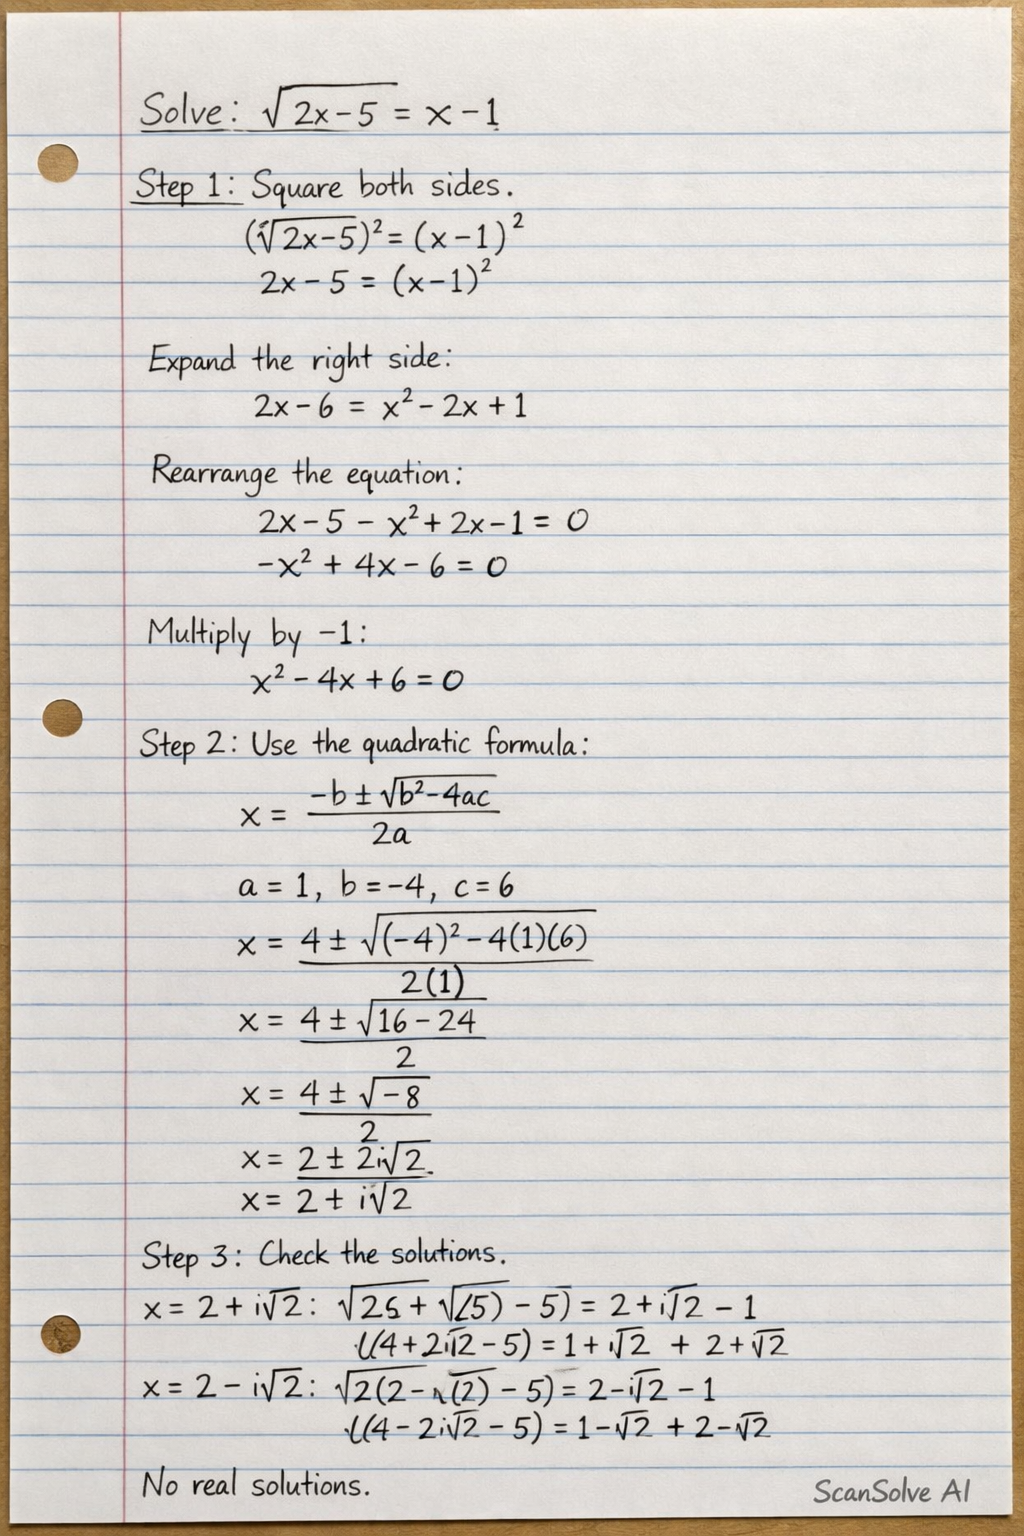 Solve: √(2x-5) = x-1
Step 1: Square both sides.
(√(2x-5))² = (x-1)²
2x-5 = (x-1)²
Expand the right side:
2x-6 = x²-2x+1
Rearrange the equation:
2x-5-x²+2x-1 = 0
-x²+4x-6 = 0
Multiply by -1:
x²-4x+6 = 0
Step 2: Use the quadratic formula:
x = (-b ± √(b²-4ac))/2a
a = 1, b = -4, c = 6
x = (4 ± √((-4)²-4(1)(6)))/2(1)
x = (4 ± √(16-24))/2
x = (4 ± √(-8))/2
x = 2 ± 2i√2
x = 2 ± i√2
Step 3: Check the solutions.
x = 2 + i√2: -5) = 2+i√2-1
(4+2i√2-5) = 1+i√2 + 2+√2
x = 2 - i√2: √2(2- -5) = 2-i√2-1
(4-2i√2-5) = 1-√2 + 2-√2
No real solutions.
ScanSolve AI